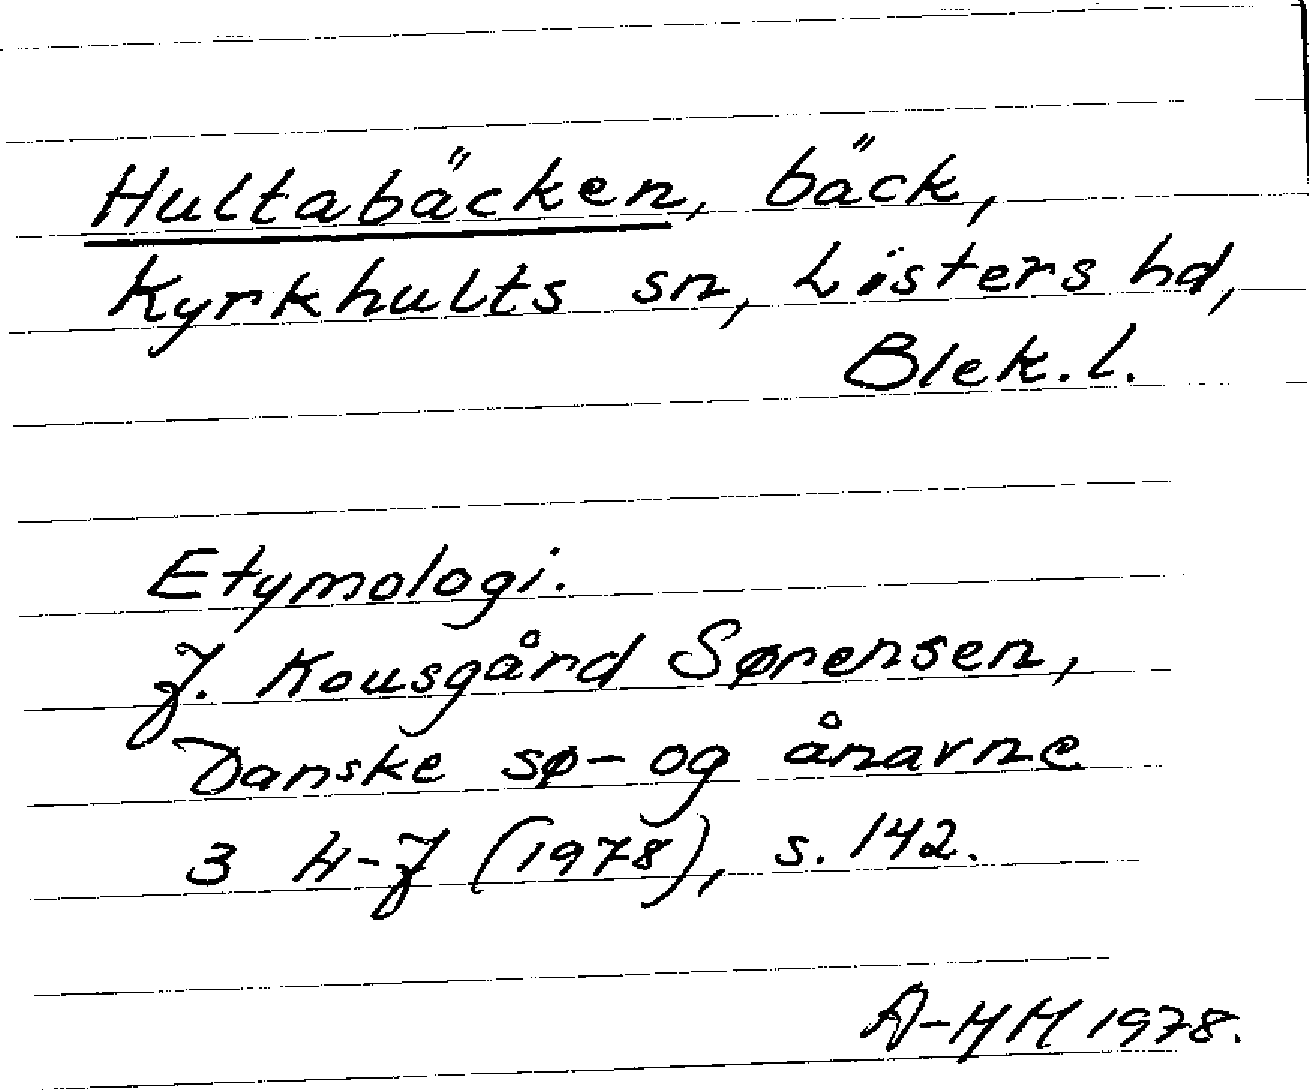 Hultabäcken, bäck,
Kyrkhults sn, Listers hd,
Blek. l.
Etymologi.
J. Kousgård Sørensen,
Danske sø- og ånavne
3 H-J (1978), s. 142.
A-MM 1978.